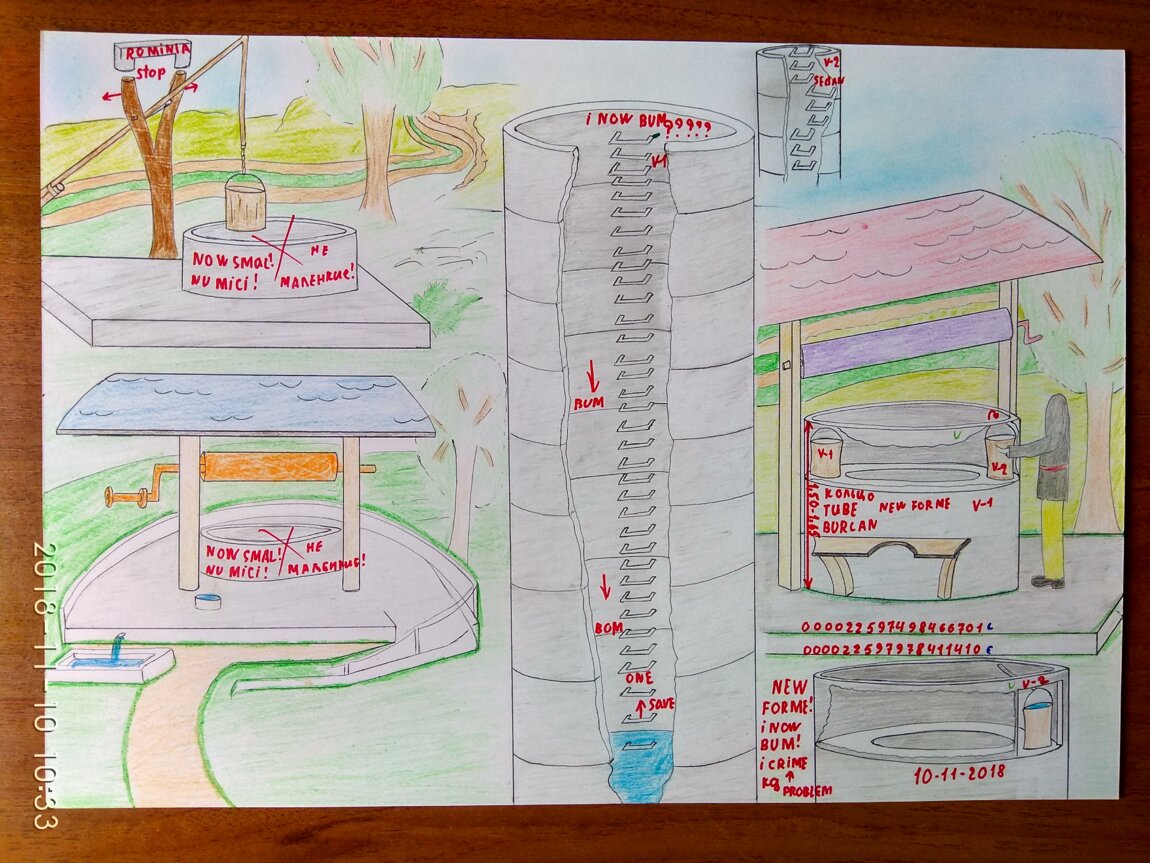 ROMINIA
stop
NOW SMAL!
NU MICI!
НЕ
МАЛЕНКИЕ!
NOW SMAL!
NU MICI!
НЕ
МАЛЕНКИЕ!
i NOW BUM ?????
V-1
BUM
BOM
ONE
SAVE
V-2
SEDAN
V-1
V-2
1,50-1,65
КОЛЬЦО
TUBE
BURLAN
NEW FORME V-1
000022597498466701 c
0000225979784114 10 c
NEW
FORME!
i NOW
BUM!
i CRIME
kg PROBLEM
V-2
10-11-2018
2018-11-10 10:33